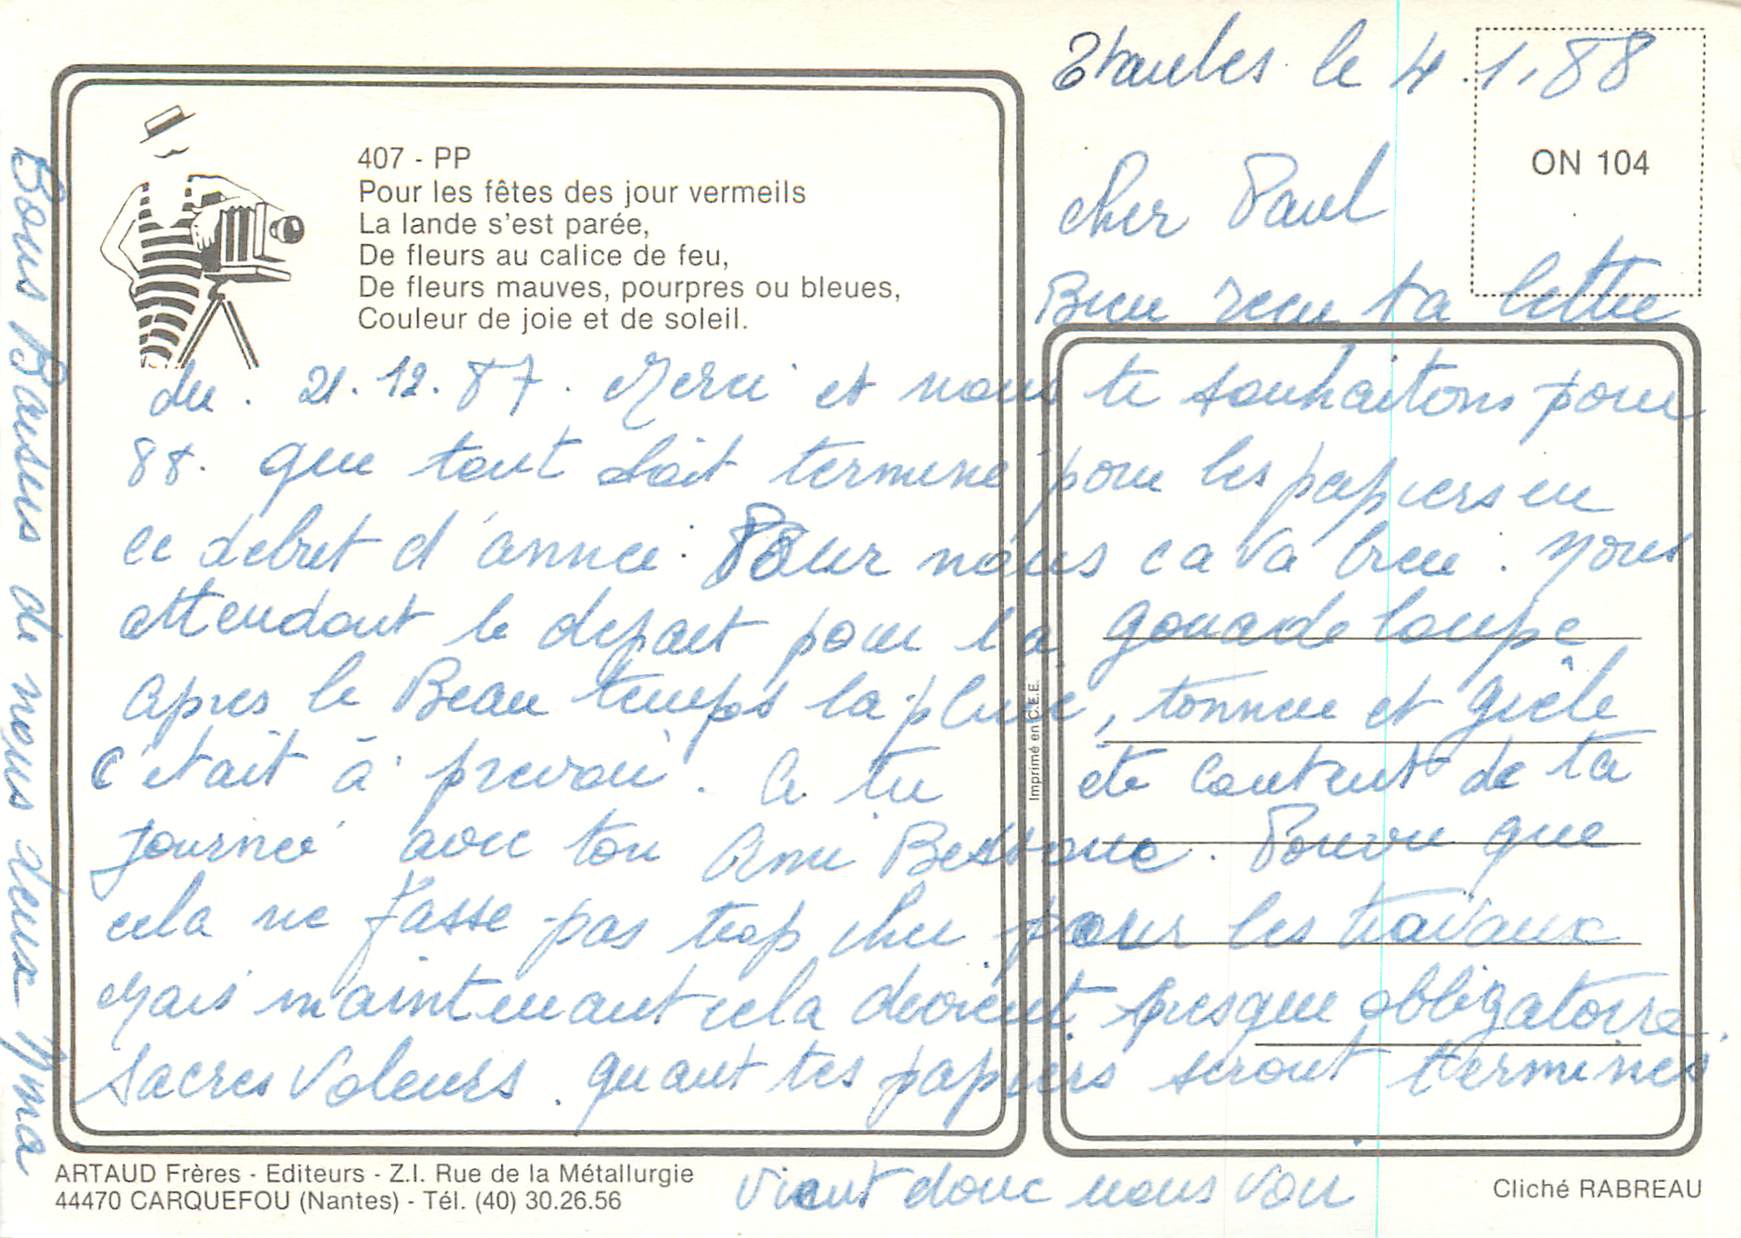 Etaules le 4.1.88
ON 104
cher Paul
Bien recu ta lettre
407 - PP
Pour les fêtes des jour vermeils
La lande s'est parée,
De fleurs au calice de feu,
De fleurs mauves, pourpres ou bleues,
Couleur de joie et de soleil.
du . 21.12.87. Merci et nous te souhaitons pour
88. que tout soit terminé pour les papiers en
ce debut d'année. Pour nous ca va bien. Nous
attendont le depart pour la gouadeloupe
apres le Beau temps la pluie, tonnere et grêle
c'était à prevoir. A tu été content de ta
journée avec ton Ami . Pourvu que
cela ne fasse pas trop cher pour les travaux
Mais maintenant cela devient presque obligatoire.
Sacres Voleurs. quant tes papiers seront terminés
vient donc nous voir
Bons Baisers de nous deux
Imprimé en C.E.E.
ARTAUD Frères - Editeurs - Z.I. Rue de la Métallurgie
44470 CARQUEFOU (Nantes) - Tél. (40) 30.26.56
Cliché RABREAU